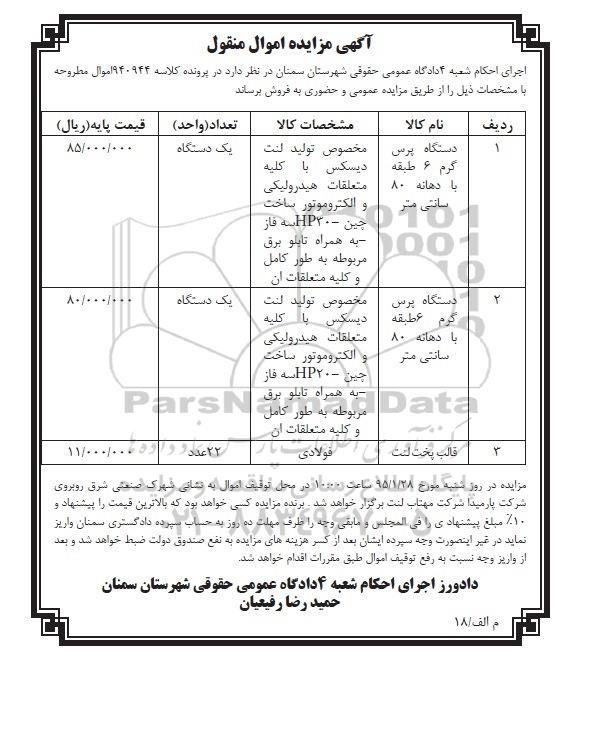 آگهی مزایده اموال منقول
اجرای احکام شعبه ۴دادگاه عمومی حقوقی شهرستان سمنان در نظر دارد در پرونده کلاسه ۹۴۰۹۴۴اموال مطروحه
با مشخصات ذیل را از طریق مزایده عمومی و حضوری به فروش برساند
ردیف نام کالا مشخصات کالا تعداد(واحد) قیمت پایه(ریال)
۱ دستگاه پرس مخصوص تولید لنت یک دستگاه ۸۵/۰۰۰/۰۰۰
گرم ۶ طبقه دیسکس با کلیه
با دهانه ۸۰ متعلقات هیدرولیکی
سانتی متر و الکتروموتور ساخت
چین –HP۳۰سه فاز
–به همراه تابلو برق
مربوطه به طور کامل
و کلیه متعلقات ان
۲ دستگاه پرس مخصوص تولید لنت یک دستگاه ۸۰/۰۰۰/۰۰۰
گرم ۶طبقه دیسکس با کلیه
با دهانه ۸۰ متعلقات هیدرولیکی
سانتی متر و الکتروموتور ساخت
چین –HP۲۰سه فاز
–به همراه تابلو برق
مربوطه به طور کامل
و کلیه متعلقات ان
۳ قالب پخت لنت فولادی ۲۲عدد ۱۱/۰۰۰/۰۰۰
مزایده در روز شنبه مورخ ۹۵/۱/۲۸ ساعت ۱۰:۰۰ در محل توقیف اموال به نشانی شهرک صنعتی شرق روبروی
شرکت پارمیدا شرکت مهتاب لنت برگزار خواهد شد . برنده مزایده کسی خواهد بود که بالاترین قیمت را پیشنهاد و
۱۰٪ مبلغ پیشنهاد ی را فی المجلس و مابقی وجه را ظرف مهلت ده روز به حساب سپرده دادگستری سمنان واریز
نماید در غیر اینصورت وجه سپرده ایشان بعد از کسر هزینه های مزایده به نفع صندوق دولت ضبط خواهد شد و بعد
از واریز وجه نسبت به رفع توقیف اموال طبق مقررات اقدام خواهد شد.
دادورز اجرای احکام شعبه ۴دادگاه عمومی حقوقی شهرستان سمنان
حمید رضا رفیعیان
م الف/۱۸
ParsNamadData